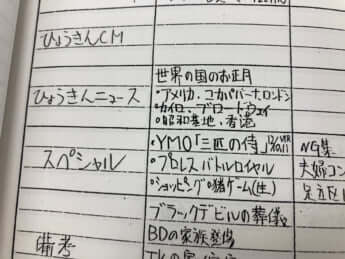 ひょうきんCM
世界の国のお正月
ひょうきんニュース
・アメリカ、コカパバーナ、ロンドン
・カイロ、ブロードウェイ
・昭和基地、香港
スペシャル
・YMO「三匹の侍」
NG集
・プロレスバトルロイヤル
夫婦コン
・ショッピング賭ゲーム(生)
足立区
ブラックデビルの葬儀
備考
BDの家族登場